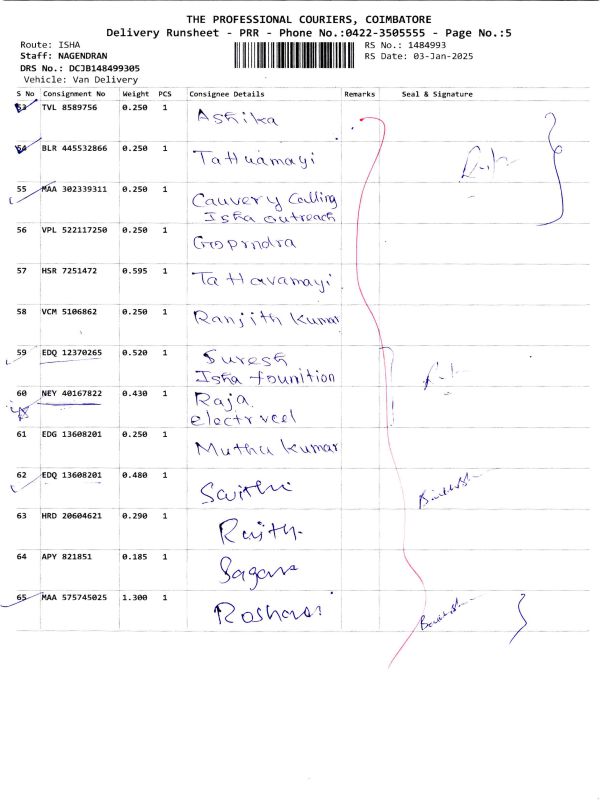 THE PROFESSIONAL COURIERS, COIMBATORE
Delivery Runsheet - PRR - Phone No.:0422-3505555 - Page No.:5
Route: ISHA
RS No.: 1484993
Staff: NAGENDRAN
RS Date: 03-Jan-2025
DRS No.: DCJB148499305
Vehicle: Van Delivery
S No Consignment No Weight PCS Consignee Details Remarks Seal & Signature
53 TVL 8589756 0.250 1 Ashika
54 BLR 445532866 0.250 1 Tathuamayi
55 MAA 302339311 0.250 1 Cauvery Calling
Isha outreach
56 VPL 522117250 0.250 1 Goprndra
57 HSR 7251472 0.595 1 Tathavamayi
58 VCM 5106862 0.250 1 Ranjith Kumar
59 EDQ 12370265 0.520 1 Suresh
Isha founition
60 NEY 40167822 0.430 1 Raja.
electrveel
61 EDG 13608201 0.250 1 Muthu kumar
62 EDQ 13608201 0.480 1
63 HRD 20604621 0.290 1
64 APY 821851 0.185 1
65 MAA 575745025 1.300 1